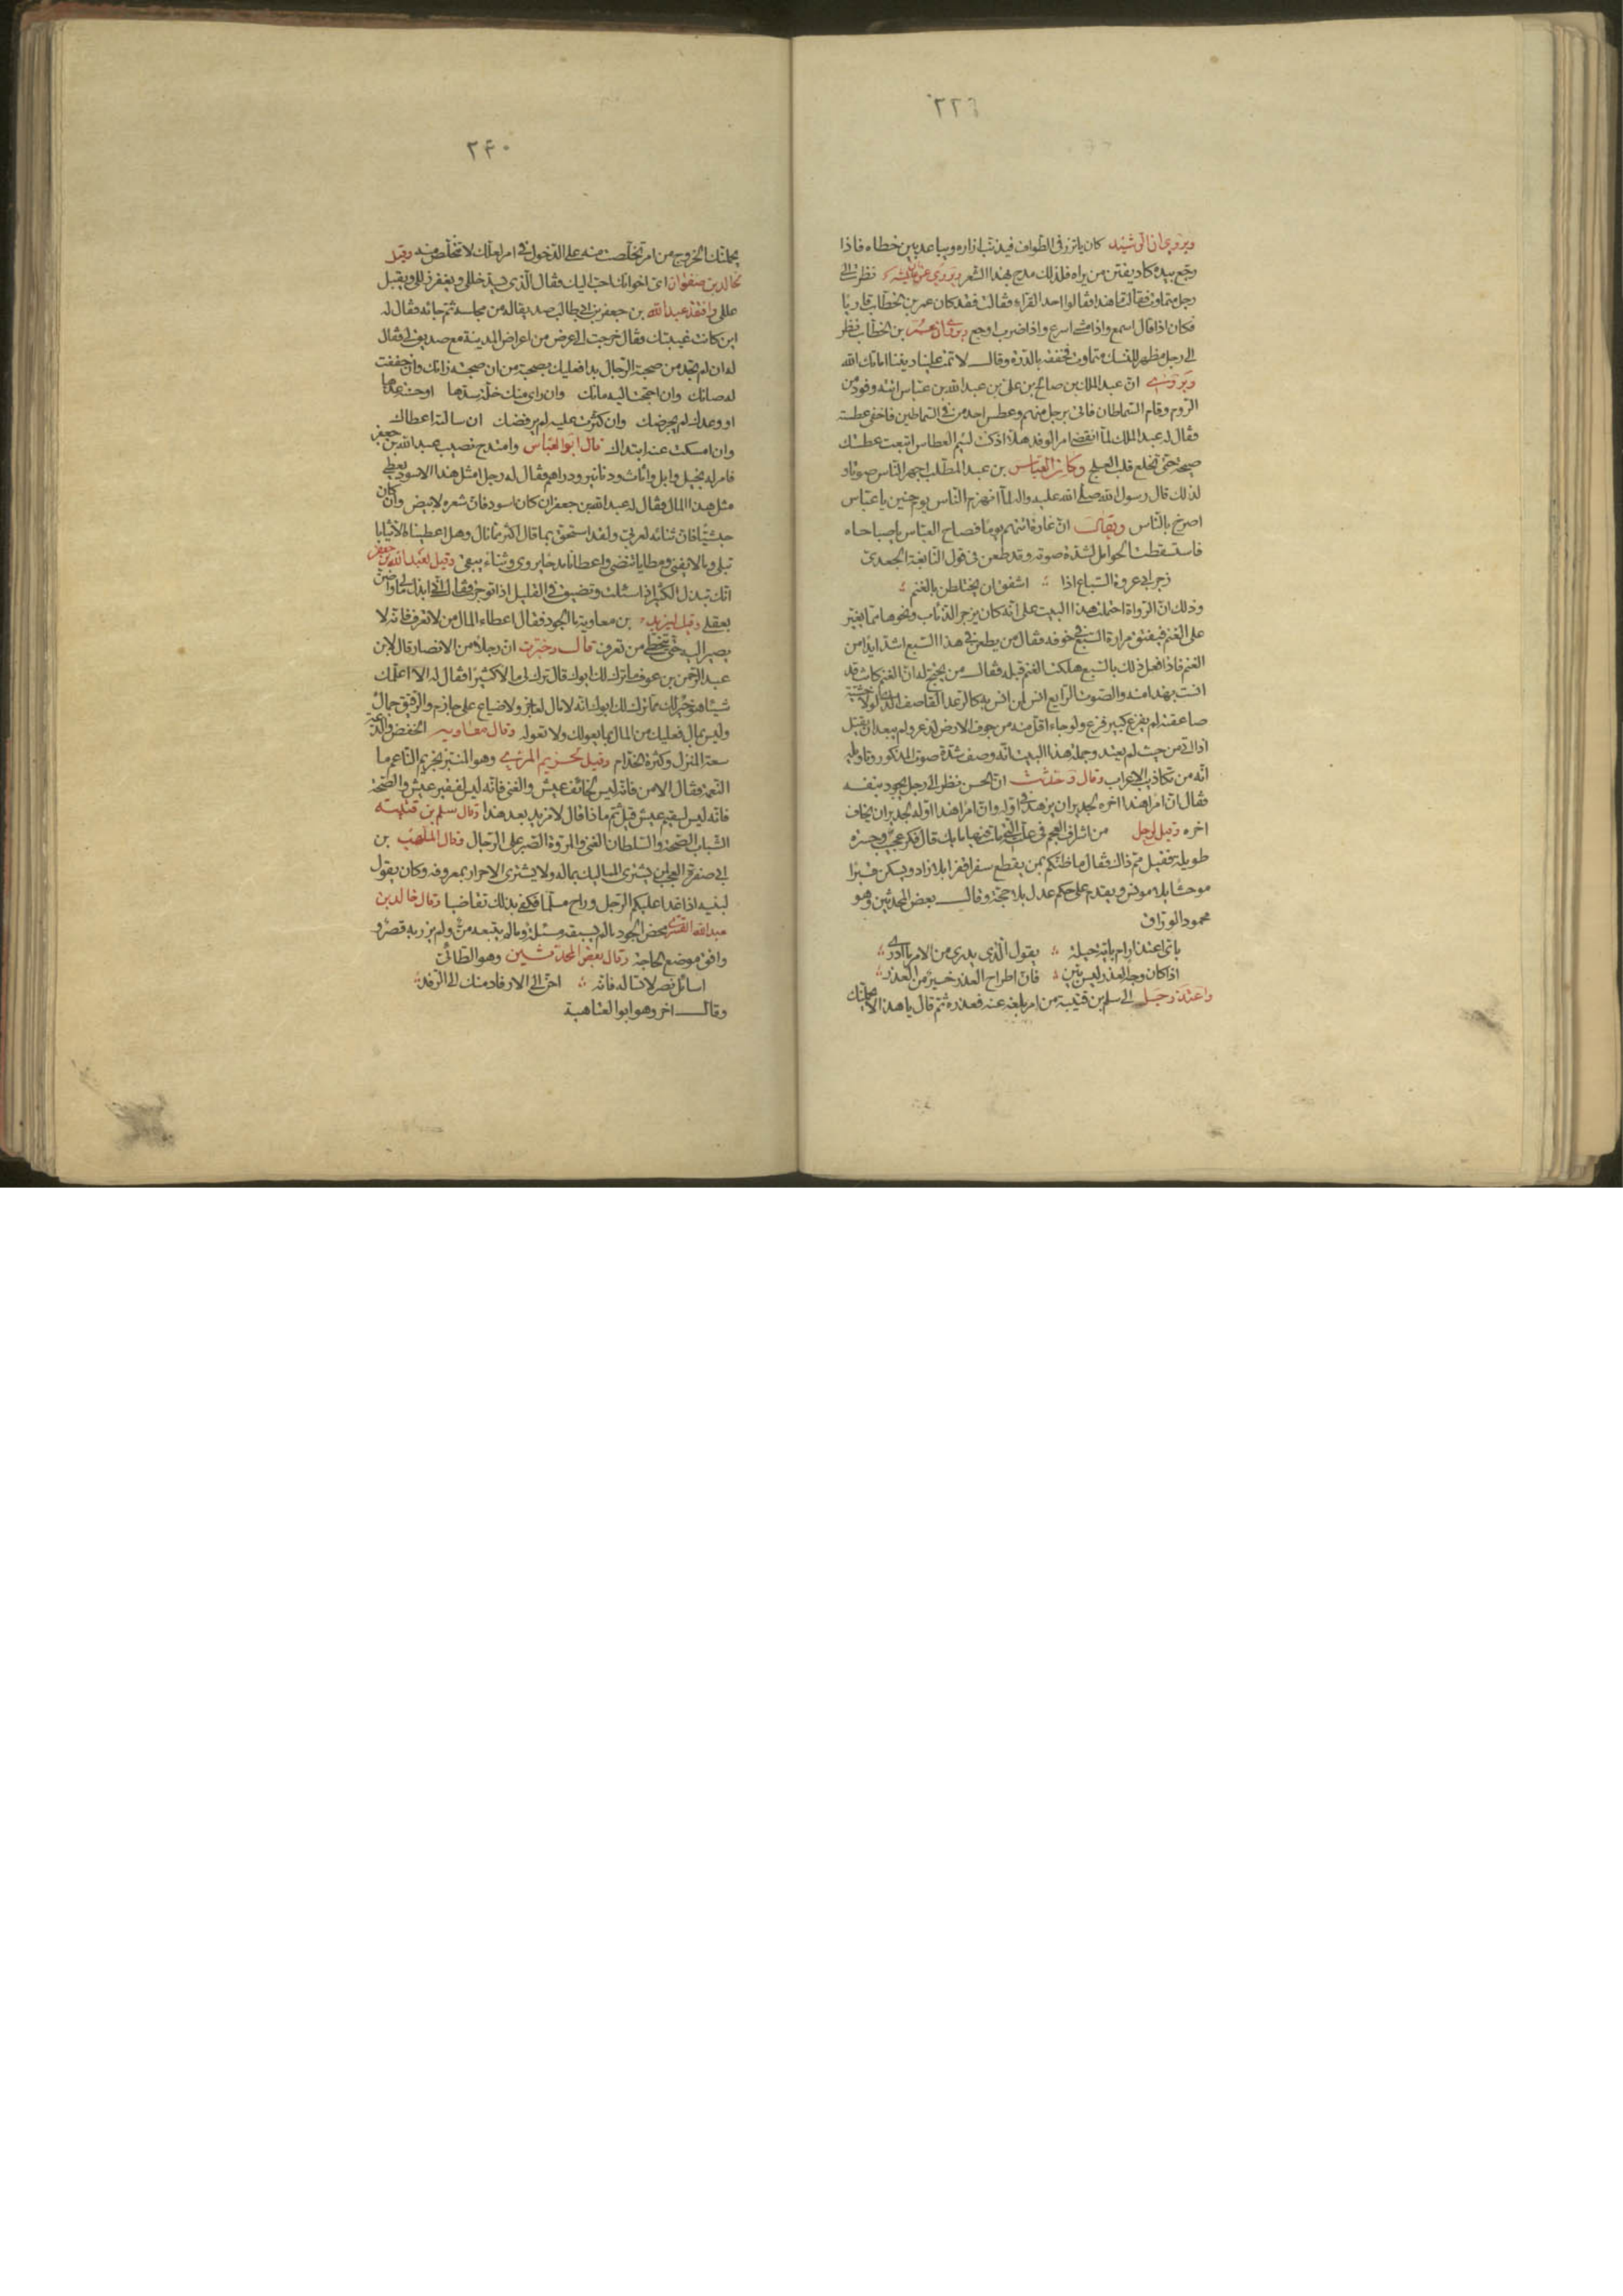 ٢٢٦
ويروى ان الرشيد كان ياتزر فى الطواف فيذنب ازاره ويباعد بين خطاه فاذا
رجع بيده كاد يفتن من يراه فلذلك مدح بهذا الشعر ويروى عن عايشه نظرت الى
رجل متماوت فقالت ما هذا فقالوا احد القراء فقالت فقد كان عمر بن الخطاب قاريًا
فكان اذا قال اسمع واذا مشى اسرع واذا ضرب اوجع ويروى ان عمر بن الخطاب نظر
الى رجل مظهر للنسك متماوت فخفقه بالدرة وقال لا تمت علينا ديننا اماتك الله
ويروى ان عبد الملك بن صالح بن على بن عبد الله بن عباس اتته وفود من
الروم وقام السماطان فاتى برجل منهم وعطس احد من فى السماطين فاخفى عطسته
وقال له عبد الملك لما انقضى امر الوفد هلا اذ كنت لئيم العطاس اتبعت عطستك
صيحة حتى تخلع قلب العلج وكان العباس بن عبد المطلب اجهر الناس صوتا و
لذلك قال رسول الله صلى الله عليه واله لما انهزم الناس يوم حنين يا عباس
اصرخ بالناس ويقال ان غارة اتتهم يوما فصاح العباس يا صباحاه
فاستسقطت الحوامل لشدة صوته وقد طعن فى قول النابغة الجعدى
زجر ابى عروة السباع اذا اشفق ان يختلطن بالغنم
وذلك ان الرواة احتملت هذا البيت على انه كان يزجر الذئاب ونحوها مما يغير
على الغنم فيفتق مرارة السبع فى جوفه فقال من يطعن فى هذا السبع اشد ايدا من
الغنم فاذا فعل ذلك بالسبع هلكت الغنم قبله فقال من يحتج له ان الغنم كانت قد
انست بهذا منه والصوت الرايع انس لمن انس به كالرعد القاصف الذى لولا خشية
صاعقته لم يفزع كبير فزع ولو جاء اقل منه من جوف الارض لذعر ولم يبعد ان يقتل
اذا اتى من حيث لم يعتد وجملة هذا البيت انه وصف شدة صوت المذكور وتاوله
انه من تكاذيب الاعراب وقال وحدثت ان الحسن نظر الى رجل يجود بنفسه
فقال ان امرا هذا اخره لجدير ان يزهد فى اوله وان امرا هذا اوله لجدير ان يخاف
اخره وقيل لرجل من اشراف العجم فى علته التى مات فيها ما بك قال فكر عجيب وحسرة
طويلة فقيل مم ذاك فقال ما ظنكم بمن يقطع سفرا قفرا بلا زاد ويسكن قبرا
موحشا بلا مونس ويقدم على حكم عدل بلا حجة وقال بعض المحدثين وهو
محمود الوراق
باى اعتذار ام باية حيلة يقول الذى يدرى من الامر ما ادرى
اذا كان وجه العذر ليس ببين فان اطراح العذر خير من العذر
واعتذر رجل الى سلم بن قتيبة من امر بلغه عنه فعذره ثم قال يا هذا لا يحملنك
٢٤٠
يحملنك الخروج من امر تخلصت منه على الدخول فى امر لعلك لا تخلص منه وقيل
لخالد بن صفوان اى اخوانك احب اليك فقال الذى يسد خللى ويغفر زللى ويقبل
عللى وافتقد عبد الله بن جعفر بن ابى طالب صديقا له من مجلسه ثم جائه فقال له
اين كانت غيبتك فقال خرجت الى عرض من اعراض المدينة مع صديق لى فقال
له ان لم تجد من صحبة الرجال بدا فعليك بصحبة من ان صحبته زانك وان خففت
له صانك وان احتجت اليه مانك وان راى منك خلة سدها او حسنة عدها
او وعدك لم يجرضك وان كثرت عليه لم يرفضك ان سالته اعطاك
وان امسكت عنه ابتداك قال ابو العباس وامتدح نصيب عبد الله بن جعفر
فامر له بخيل وابل واثاث ودنانير ودراهم فقال له رجل امثل هذا الاسود يعطى
مثل هذا المال فقال له عبد الله بن جعفر ان كان اسود فان شعره لابيض وان كان
حبشيا فان ثنائه لعربى ولقد استحق بما قال اكثر مما نال وهل اعطيناه الا ثيابا
تبلى ومالا يفنى ومطايا تنضى واعطانا مدحا يروى وثناء يبقى وقيل لعبد الله بن جعفر
انك تبذل الكثير اذا سئلت وتضيق فى القليل اذا توجرت فقال انى ابذل مالى واضن
بعقلى وقيل ليزيد بن معاوية ما الجود فقال اعطاء المال من لا تعرف فانه لا
يصير اليه حتى يتخطى من تعرف قال وخبرت ان رجلا من الانصار قال لابن
عبد الرحمن بن عوف ما ترك لك ابوك قال ترك لى مالا كثيرا فقال له الا اعلمك
شيئا هو خير لك مما ترك لك ابوك انه لا مال لعاجز ولا ضياع على حازم والرقيق جمال
وليس بمال فعليك من المال بما يعولك ولا تعوله وقال معاويه الخفض والدعة
سعة المنزل وكثرة الخدام وقيل لخريم المرى وهو المنبز بخريم الناعم ما
النعمة فقال الامن فانه ليس لخائف عيش والغنى فانه ليس لفقير عيش والصحة
فانه ليس لسقيم عيش قيل ثم ماذا قال لا مزيد بعد هذا وقال سلم بن قتيبه
الشباب الصحة والسلطان الغنى والمروة الصبر على الرجال وقال المهلب بن
ابى صفرة العجب لمن يشترى المماليك بماله ولا يشترى الاحرار بمعروفه وكان يقول
لبنيه اذا غدا عليكم الرجل وراح مسلما فكفى بذلك تقاضيا وقال خالد بن
عبد الله القسرى محض الجود ما لم يسبقه مسئلة وما لم يتبعه من ولم يزر به قصر و
وافق موضع الحاجة وقال بعض المحدثين وهو الطائى
اسائل نصر لا تساله فانه احن الى الارفاد منك الى الرفد
وقال اخر وهو ابو العتاهية